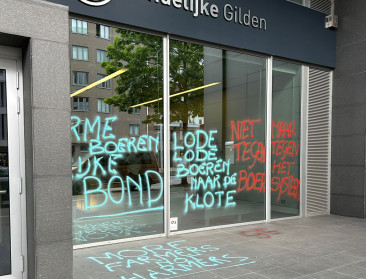 ndelijke Gilden
RME
BOEREN
IJKE
BOND
LODE
LODE
BOEREN
NAAR DE
KLOTE
NIET
TEGEN
BOER
MAAR
TEGEN
HET
SYSTEEM
MORE
FARMERS